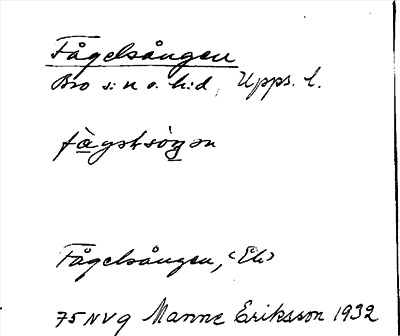 Fågelsången
Bro s:n o. h:d, Upps. l.
fàgəlsòŋən
Fågelsången, (Ek)
75 NV 9 Manne Eriksson 1932